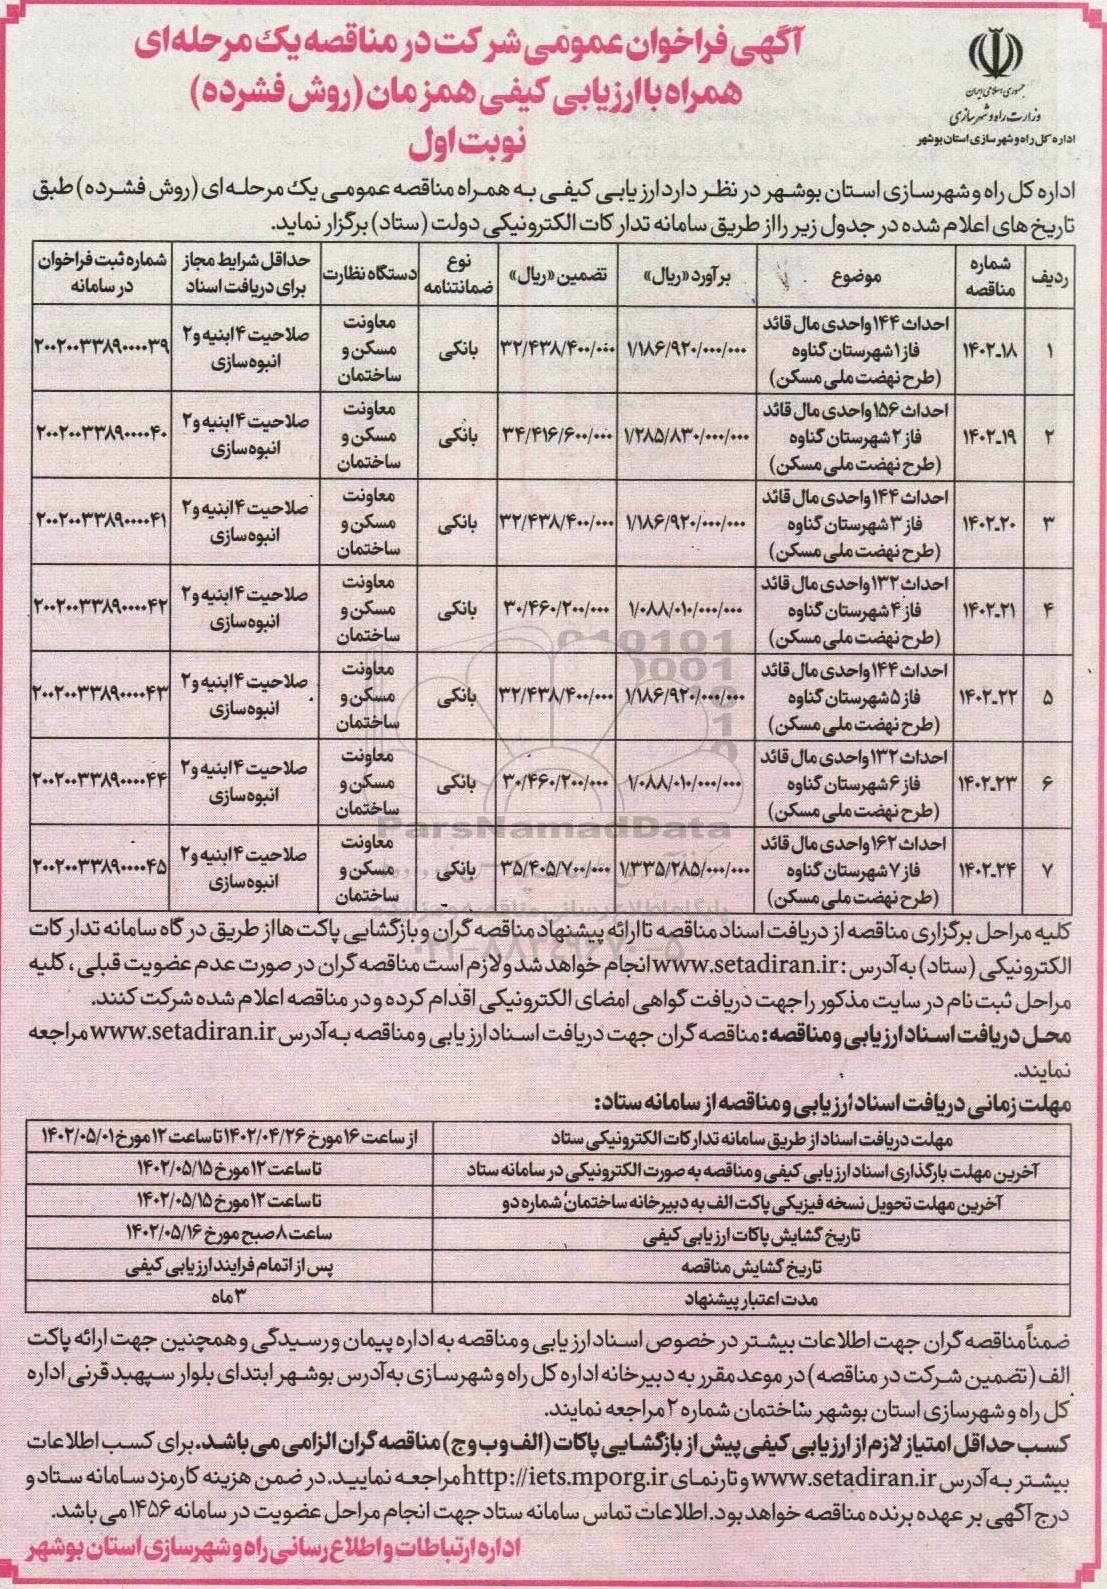 جمهوری اسلامی ایران
وزارت راه و شهرسازی
اداره کل راه و شهرسازی استان بوشهر
آگهی فراخوان عمومی شرکت در مناقصه یک مرحله‌ای
همراه با ارزیابی کیفی همزمان (روش فشرده)
نوبت اول
اداره کل راه و شهرسازی استان بوشهر در نظر دارد ارزیابی کیفی به همراه مناقصه عمومی یک مرحله‌ای (روش فشرده) طبق
تاریخ های اعلام شده در جدول زیر را از طریق سامانه تدارکات الکترونیکی دولت (ستاد) برگزار نماید.
ردیف | شماره مناقصه | موضوع | برآورد «ریال» | تضمین «ریال» | نوع ضمانتنامه | دستگاه نظارت | حداقل شرایط مجاز برای دریافت اسناد | شماره ثبت فراخوان در سامانه
۱ | ۱۴۰۲-۱۸ | احداث ۱۴۴ واحدی مال قائد فاز ۱ شهرستان گناوه (طرح نهضت ملی مسکن) | ۱/۱۸۶/۹۲۰/۰۰۰/۰۰۰ | ۳۲/۴۳۸/۴۰۰/۰۰۰ | بانکی | معاونت مسکن و ساختمان | صلاحیت ۴ ابنیه و ۲ انبوه سازی | ۲۰۰۲۰۰۳۳۸۹۰۰۰۰۳۹
۲ | ۱۴۰۲-۱۹ | احداث ۱۵۶ واحدی مال قائد فاز ۲ شهرستان گناوه (طرح نهضت ملی مسکن) | ۱/۲۸۵/۸۳۰/۰۰۰/۰۰۰ | ۳۴/۴۱۶/۶۰۰/۰۰۰ | بانکی | معاونت مسکن و ساختمان | صلاحیت ۴ ابنیه و ۲ انبوه سازی | ۲۰۰۲۰۰۳۳۸۹۰۰۰۰۴۰
۳ | ۱۴۰۲-۲۰ | احداث ۱۴۴ واحدی مال قائد فاز ۳ شهرستان گناوه (طرح نهضت ملی مسکن) | ۱/۱۸۶/۹۲۰/۰۰۰/۰۰۰ | ۳۲/۴۳۸/۴۰۰/۰۰۰ | بانکی | معاونت مسکن و ساختمان | صلاحیت ۴ ابنیه و ۲ انبوه سازی | ۲۰۰۲۰۰۳۳۸۹۰۰۰۰۴۱
۴ | ۱۴۰۲-۲۱ | احداث ۱۳۲ واحدی مال قائد فاز ۴ شهرستان گناوه (طرح نهضت ملی مسکن) | ۱/۰۸۸/۰۱۰/۰۰۰/۰۰۰ | ۳۰/۴۶۰/۲۰۰/۰۰۰ | بانکی | معاونت مسکن و ساختمان | صلاحیت ۴ ابنیه و ۲ انبوه سازی | ۲۰۰۲۰۰۳۳۸۹۰۰۰۰۴۲
۵ | ۱۴۰۲-۲۲ | احداث ۱۴۴ واحدی مال قائد فاز ۵ شهرستان گناوه (طرح نهضت ملی مسکن) | ۱/۱۸۶/۹۲۰/۰۰۰/۰۰۰ | ۳۲/۴۳۸/۴۰۰/۰۰۰ | بانکی | معاونت مسکن و ساختمان | صلاحیت ۴ ابنیه و ۲ انبوه سازی | ۲۰۰۲۰۰۳۳۸۹۰۰۰۰۴۳
۶ | ۱۴۰۲-۲۳ | احداث ۱۳۲ واحدی مال قائد فاز ۶ شهرستان گناوه (طرح نهضت ملی مسکن) | ۱/۰۸۸/۰۱۰/۰۰۰/۰۰۰ | ۳۰/۴۶۰/۲۰۰/۰۰۰ | بانکی | معاونت مسکن و ساختمان | صلاحیت ۴ ابنیه و ۲ انبوه سازی | ۲۰۰۲۰۰۳۳۸۹۰۰۰۰۴۴
۷ | ۱۴۰۲-۲۴ | احداث ۱۶۲ واحدی مال قائد فاز ۷ شهرستان گناوه (طرح نهضت ملی مسکن) | ۱/۳۳۵/۲۸۵/۰۰۰/۰۰۰ | ۳۵/۴۰۵/۷۰۰/۰۰۰ | بانکی | معاونت مسکن و ساختمان | صلاحیت ۴ ابنیه و ۲ انبوه سازی | ۲۰۰۲۰۰۳۳۸۹۰۰۰۰۴۵
ParsNamadData
کلیه مراحل برگزاری مناقصه از دریافت اسناد مناقصه تا ارائه پیشنهاد مناقصه گران و بازگشایی پاکت ها از طریق در گاه سامانه تدارکات
الکترونیکی (ستاد) به آدرس: www.setadiran.ir انجام خواهد شد و لازم است مناقصه گران در صورت عدم عضویت قبلی، کلیه
مراحل ثبت نام در سایت مذکور را جهت دریافت گواهی امضای الکترونیکی اقدام کرده و در مناقصه اعلام شده شرکت کنند.
محل دریافت اسناد ارزیابی و مناقصه: مناقصه گران جهت دریافت اسناد ارزیابی و مناقصه به آدرس www.setadiran.ir مراجعه
نمایند.
مهلت زمانی دریافت اسناد ارزیابی و مناقصه از سامانه ستاد:
مهلت دریافت اسناد از طریق سامانه تدارکات الکترونیکی ستاد | از ساعت ۱۶ مورخ ۱۴۰۲/۰۴/۲۶ تا ساعت ۱۲ مورخ ۱۴۰۲/۰۵/۰۱
آخرین مهلت بارگذاری اسناد ارزیابی کیفی و مناقصه به صورت الکترونیکی در سامانه ستاد | تا ساعت ۱۲ مورخ ۱۴۰۲/۰۵/۱۵
آخرین مهلت تحویل نسخه فیزیکی پاکت الف به دبیرخانه ساختمان شماره دو | تا ساعت ۱۲ مورخ ۱۴۰۲/۰۵/۱۵
تاریخ گشایش پاکات ارزیابی کیفی | ساعت ۸ صبح مورخ ۱۴۰۲/۰۵/۱۶
تاریخ گشایش مناقصه | پس از اتمام فرایند ارزیابی کیفی
مدت اعتبار پیشنهاد | ۳ ماه
ضمناً مناقصه گران جهت اطلاعات بیشتر در خصوص اسناد ارزیابی و مناقصه به اداره پیمان و رسیدگی و همچنین جهت ارائه پاکت
الف (تضمین شرکت در مناقصه) در موعد مقرر به دبیرخانه اداره کل راه و شهرسازی به آدرس بوشهر ابتدای بلوار سپهبد قرنی اداره
کل راه و شهرسازی استان بوشهر ساختمان شماره ۲ مراجعه نمایند.
کسب حداقل امتیاز لازم از ارزیابی کیفی پیش از بازگشایی پاکات (الف و ب و ج) مناقصه گران الزامی می باشد. برای کسب اطلاعات
بیشتر به آدرس www.setadiran.ir و تارنمای http://iets.mporg.ir مراجعه نمایید. در ضمن هزینه کارمزد سامانه ستاد و
درج آگهی بر عهده برنده مناقصه خواهد بود. اطلاعات تماس سامانه ستاد جهت انجام مراحل عضویت در سامانه ۱۴۵۶ می باشد.
اداره ارتباطات و اطلاع رسانی راه و شهرسازی استان بوشهر